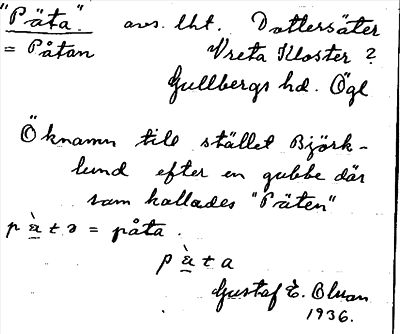 "Päta". avs. lht. Dattersäter
= Påtan Vreta Kloster ?
Gullbergs hd. Ögl
Öknamn till stället Björk-
lund efter en gubbe där
som kallades "Päten"
p à t ɔ = påta.
p à t a
Gustaf E. Bluan
1936.